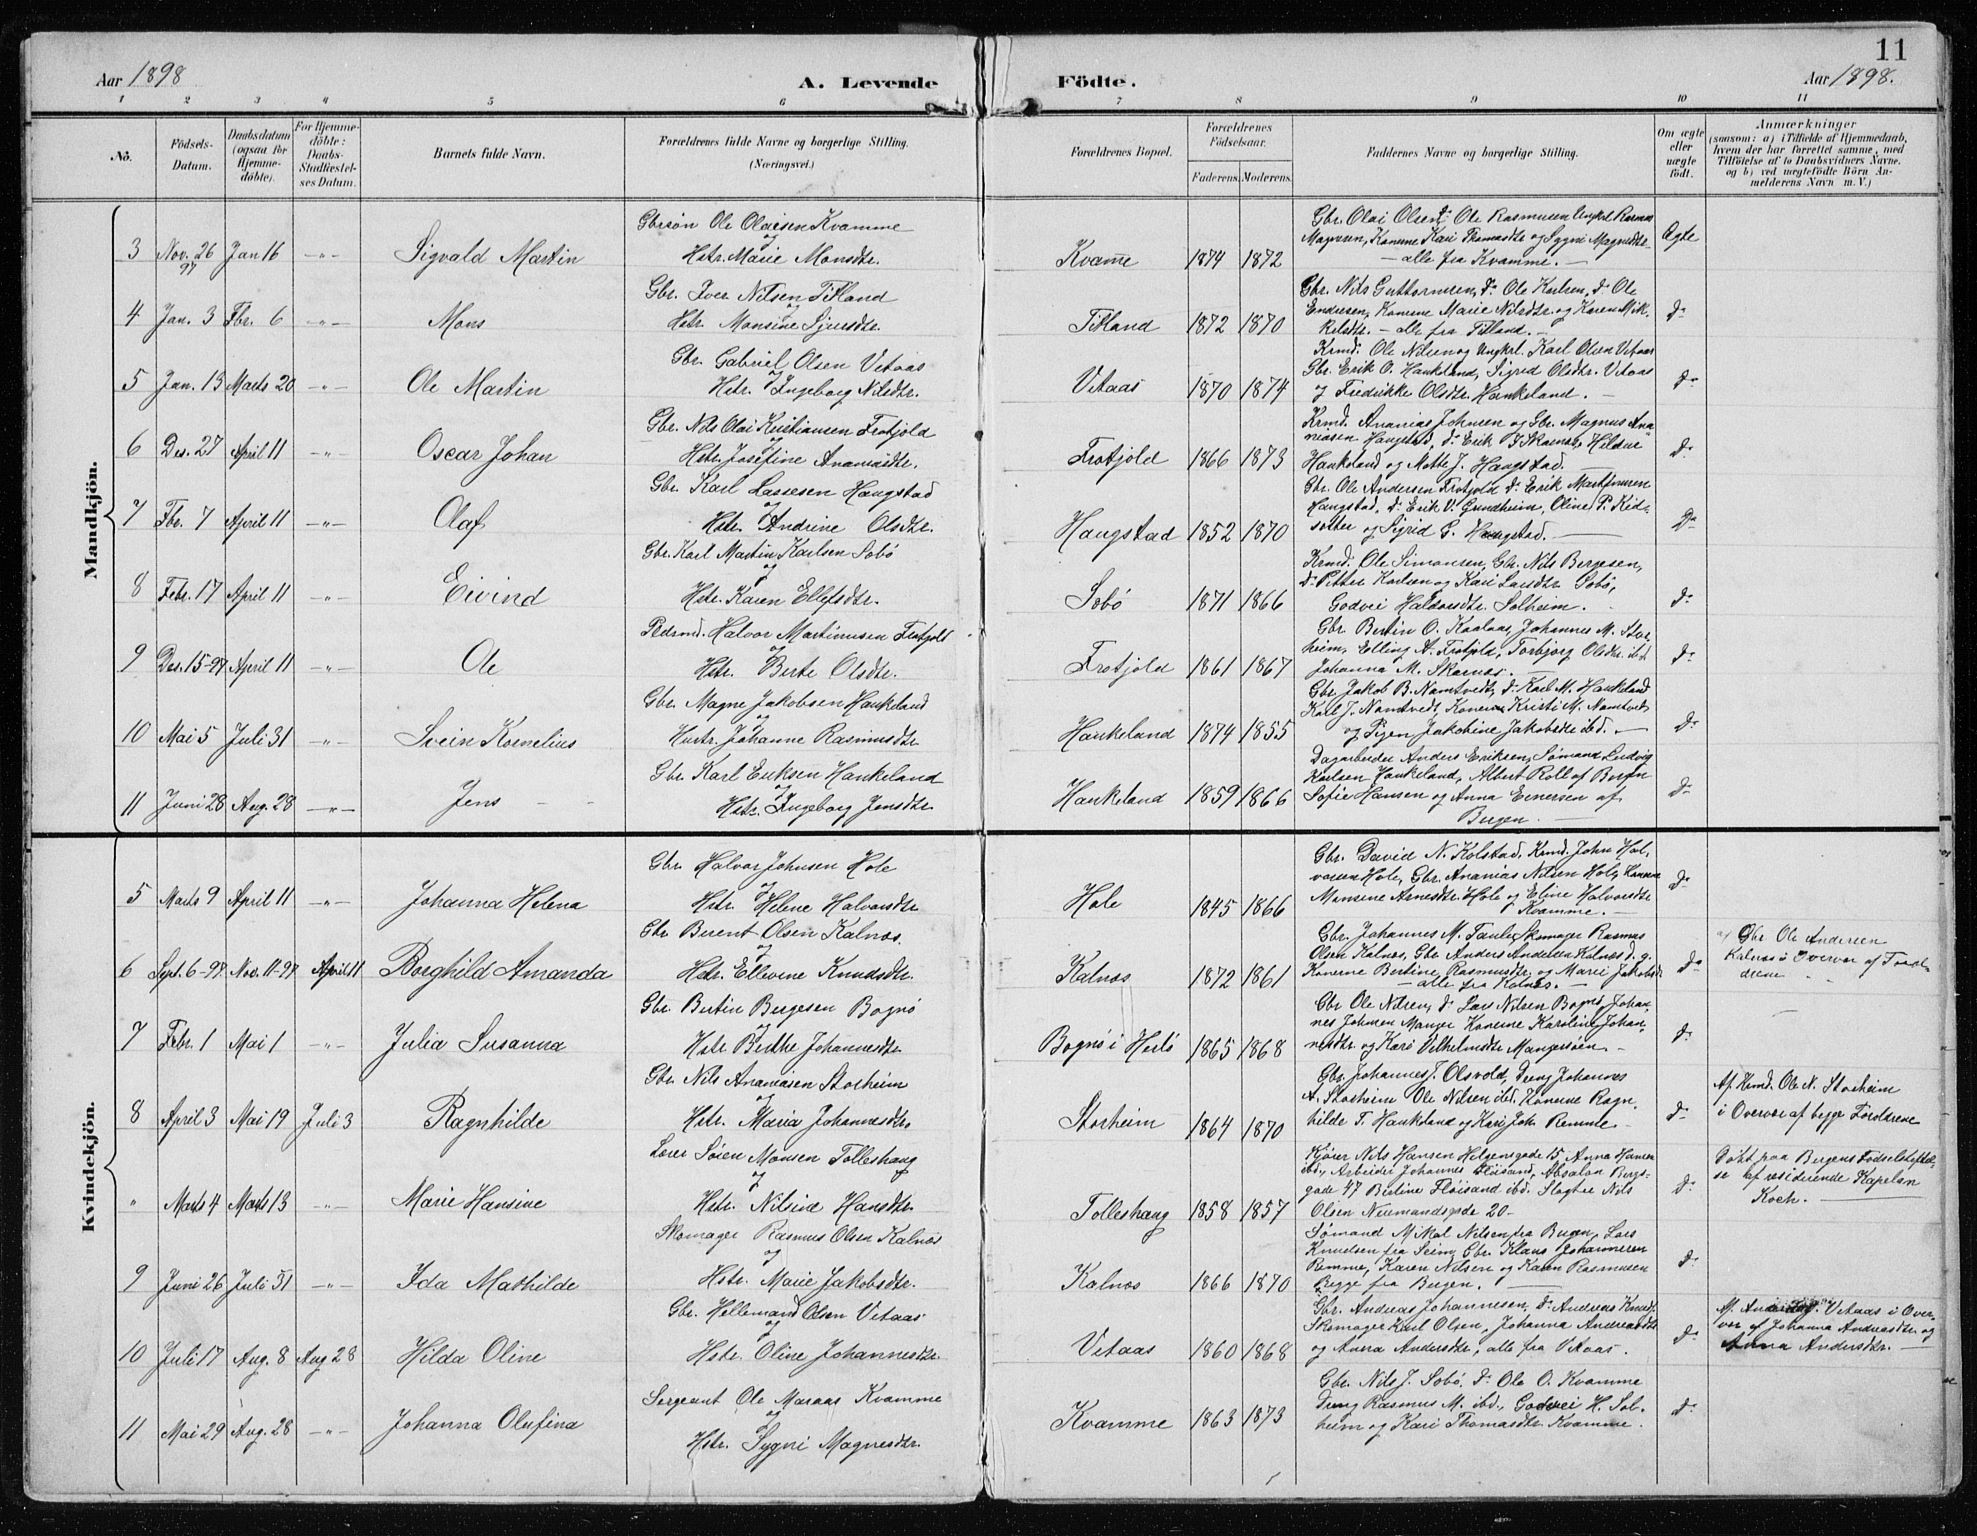 11
Aar 1898
A. Levende
Födte.
Aar 1898.
1 2 3 4 5 6 7 8 9 10 11
No.
Födsels-Datum.
Daabsdatum (ogsaa for Hjemme-döbte).
For Hjemme-döbte: Daabs-Stadfæstel-ses Datum.
Barnets fulde Navn.
Forældrenes fulde Navne og borgerlige Stilling.
(Næringsvei.)
Forældrenes Bopæl.
Forældrenes Födselsaar.
Faderens. Moderens.
Faddernes Navne og borgerlige Stilling.
Om ægte eller uægte födt.
Anmærkninger
(saasom: a) i Tilfælde af Hjemmedaab,
hvem der har forrettet samme, med
Tilföielse af to Daabsvidners Navne.
og b) ved uægtefödte Börn An-
melderens Navn m. V.)
Mandkjön.
3 Nov. 26 97 Jan 16 -"- Sigvald Martin
Gbrsøn Ole Olaisen Kvamme
og
Hstr. Marie Monsdtr.
Kvamme 1874 1872
Gbr. Olai Olsen, Do Ole Rasmusen Ungkrl Rasmus
Magnusn, Konerne Kari Thomasdtr og Sygni Magnedtr
— alle fra Kvamme. —
Ægte
4 Jan. 3 Fbr. 6 -"- Mons
Gbr. Iver Nilsen Titland
og
Hstr. Monsine Sjursdtr.
Titland 1872 1870
Gbr. Nils Guttormsen, Do Ole Karlsen, Do Ole
Endresen, Konerne Marie Nilsdtr og Karen Mik-
kelsdtr. — alle fra Titland. —
Do
5 Jan. 13 Marts 20 -"- Ole Martin
Gbr. Gabriel Olsen Vetaas
og
Hstr. Ingeborg Nilsdtr.
Vetaas 1870 1874
Krmd. Ole Nilsen og Ungkrl. Karl Olsen Vetaas
Gbr. Erik O. Haukeland, Sigrid Olsdtr. Vetaas
og Fredrikke Olsdtr. Haukeland. —
Do
6 Des. 27 April 11 -"- Oscar Johan
Gbr. Nils Olai Kristiansen Frotjold
og
Hstr. Josefine Ananiasdtr.
Frotjold 1866 1873
Krmd. Ananias Johnsen og Gbr. Magnus Ana-
niasen Haugstad, Do Erik J. Skarnes, Hildne
Haukeland og Mette J. Haugstad.
Do
7 Fbr. 7 April 11 -"- Olaf
Gbr. Karl Lassesen Haugstad
og
Hstr. Andrine Olsdtr.
Haugstad 1852 1870
Gbr. Ole Andersen Frotjold Do Erik Martinusen
Haugstad, Do Erik V. Grundheim, Oline P. Kid-
sotter og Sigrid G. Haugstad. —
Do
8 Febr. 17 April 11 -"- Eivind
Gbr. Karl Martin Karlsen Sobö
og
Hstr. Karen Ellefsdtr.
Sobö 1871 1866
Krmd. Ole Simonsen, Gbr. Nils Bergesen,
Do Petter Karlsen og Kari Larsdtr Sobö,
Godvei Haldorsdtr. Solheim.
Do
9 Des. 15-97 April 11 -"- Ole
Pldsmd. Halvor Martinusen Frotjold
og
Hstr. Berte Olsdtr.
Frotjold 1861 1867
Gbr. Bertin O. Kaalaas, Johannes M. Stor-
heim, Elling A. Frotjold, Torbjorg Olsdtr. ibd.
Johanna M. Skarnes.
Do
10 Mai 5 Juli 31 -"- Svein Kornelius
Gbr. Magne Jakobsen Haukeland
og
Hustr. Johanne Rasmusdtr
Haukeland 1874 1855
Gbr Jakob B. Namtvedt, Do Karl M. Haukeland
Karl J. Namtvedt, Konerne Kristi M. Namtvedt
og Pigen Jakobine Jakobsdtr ibd. —
Do
11 Juni 28 Aug. 28 -"- Jens
Gbr. Karl Eriksen Haukeland
og
Hstr. Ingeborg Jensdtr.
Haukeland 1859 1866
Dagarbeider Anders Eriksen, Sømand Ludvig
Karlsen Haukeland, Albert Roll af Bergen
Sofie Hansen og Anna Einersen af
Bergen. —
Do
Kvindekjön.
5 Marts 9 April 11 -"- Johanna Helena
Gbr. Halvor Johnsen Hole
og
Hstr. Helene Halvorsdtr
Hole 1845 1866
Gbr. David N. Kolstad, Krmd. John Hal-
vorsen Hole, Gbr. Ananias Nilsen Hole, Konerne
Monsine Arnesdtr Hole og Eline Halvorsdtr
Kvamme. —
Do
6 Sept. 6-97. Nov. 11-97 April 11 Borghild Amanda
Gbr Berent Olsen Kalnes.
og
Hstr. Ellevine Knudsdtr.
Kalnes 1872 1861
Gbr. Johannes M. Taule, Skomager Rasmus
Olsen Kalnes, Gbr Anders Andersen Kalnes d. y.
Konerne Bertine Rasmusdtr og Marie Jakobsdtr
— alle fra Kalnes. —
Do
af Gbr Ole Andersen
Kalnes i Overvær af Foræl-
drene
7 Febr. 1 Mai 1 -"- Julia Susanna
Gbr. Bertin Bergesen Bognø
og
Hstr Berthe Johannesdtr
Bognø i Herlö 1865 1868
Gbr Ole Nilsen, Do Lars Nilsen Bognø, Johan-
nes Johnsen Manger Konerne Karoline Johan-
nesdtr og Kari Vilhelmsdtr Mangersøen —
Do
8 April 3 Mai 19 Juli 3 Ragnhilde
Gbr. Nils Ananiasen Storheim
og
Hstr. Maria Johannesdtr
Storheim 1864 1870
Gbr. Johannes J. Olsvold, Dreng Johannes
A. Storheim Ole Nilsen ibd. Konerne Ragn-
hilde T. Haukeland og Kari Joh. Remmle. —
Do
Af Krmd. Ole N. Storheim
i Overvær af begge Forældrene
" Marts 4 Marts 13 -"- Marie Hansine
Lærer Søren Monsen Tolleshaug
og
Hstr. Nilsine Hansdtr.
Tolleshaug 1858 1857
Kjører Nils Hansen Helgensgade 15 Anna Hansen
ibd., Arbeider Johannes Fløisand, Absalon Bergs-
gade 47 Bertine Fløisand ibd. Slagter Nils
Olsen Neumandsgade 20 —
Do
Døbt paa Bergens Fødselsstiftel-
se af residerende Kapelan
Koch. —
9 Juni 26 Juli 31 -"- Ida Mathilde
Skomager Rasmus Olsen Kalnes
og
Hstr. Marie Jakobsdtr.
Kalnes 1866 1870
Sømand Mikal Nilsen fra Bergen, Lars
Knudsen fra Seim, Gbr. Klaus Johannesen
Remme, Karen Nilsen og Karen Rasmusen
Begge fra Bergen. —
Do
10 Juli 17 Aug. 8 Aug 28 Hilda Oline
Gbr. Hellemand Olsen Vetaas
og
Hstr. Oline Johannesdtr.
Vetaas 1860 1868
Gbr. Andreas Johannesen, Do Andreas Knudsn
Skomager Karl Olsen, Johanna Andreasdtr
og Anna Andersdtr, alle fra Vetaas.
Do
Vetaas i Over-
vær af Johanna Andreasdtr og
Anna Andersdtr. —
11 Mai 29 Aug. 28 -"- Johanna Olufina
Sergeant Ole Maraas Kvamme
og
Hstr. Sygni Magnesdtr.
Kvamme 1863 1873
Gbr. Nils J. Sobö, Do Ole O. Kvamme
Dreng Rasmus M. ibd., Godvei H. Sol-
heim og Kari Thomasdtr. Kvamme.
Do